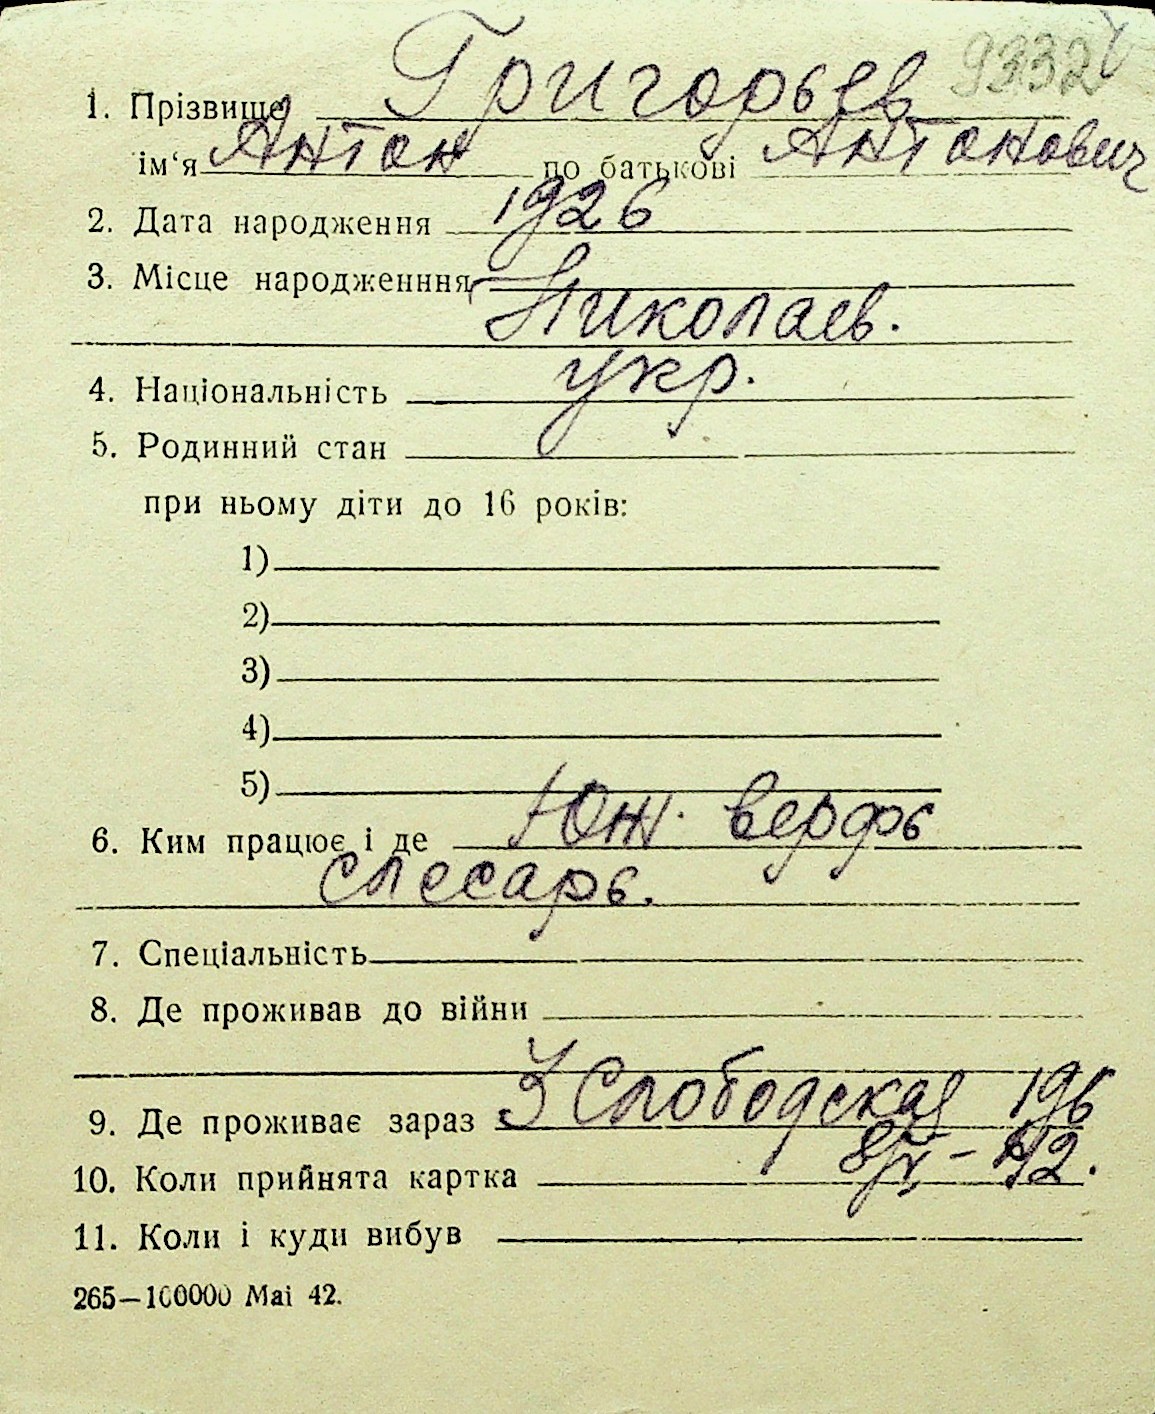 93324
1. Прізвище Григорьев
ім‘я Антон по батькові Антонович
2. Дата народження 1926
3. Місце народженння
Николаев.
4. Національність укр.
5. Родинний стан
при ньому діти до 16 років:
1)
2)
3)
4)
5)
6. Ким працює і де Юж. верфь
слесарь.
7. Спеціальність
8. Де проживав до війни
9. Де проживає зараз 3 Слободская 196
10. Коли прийнята картка 42.
11. Коли і куди вибув
265—100000 Mai 42.